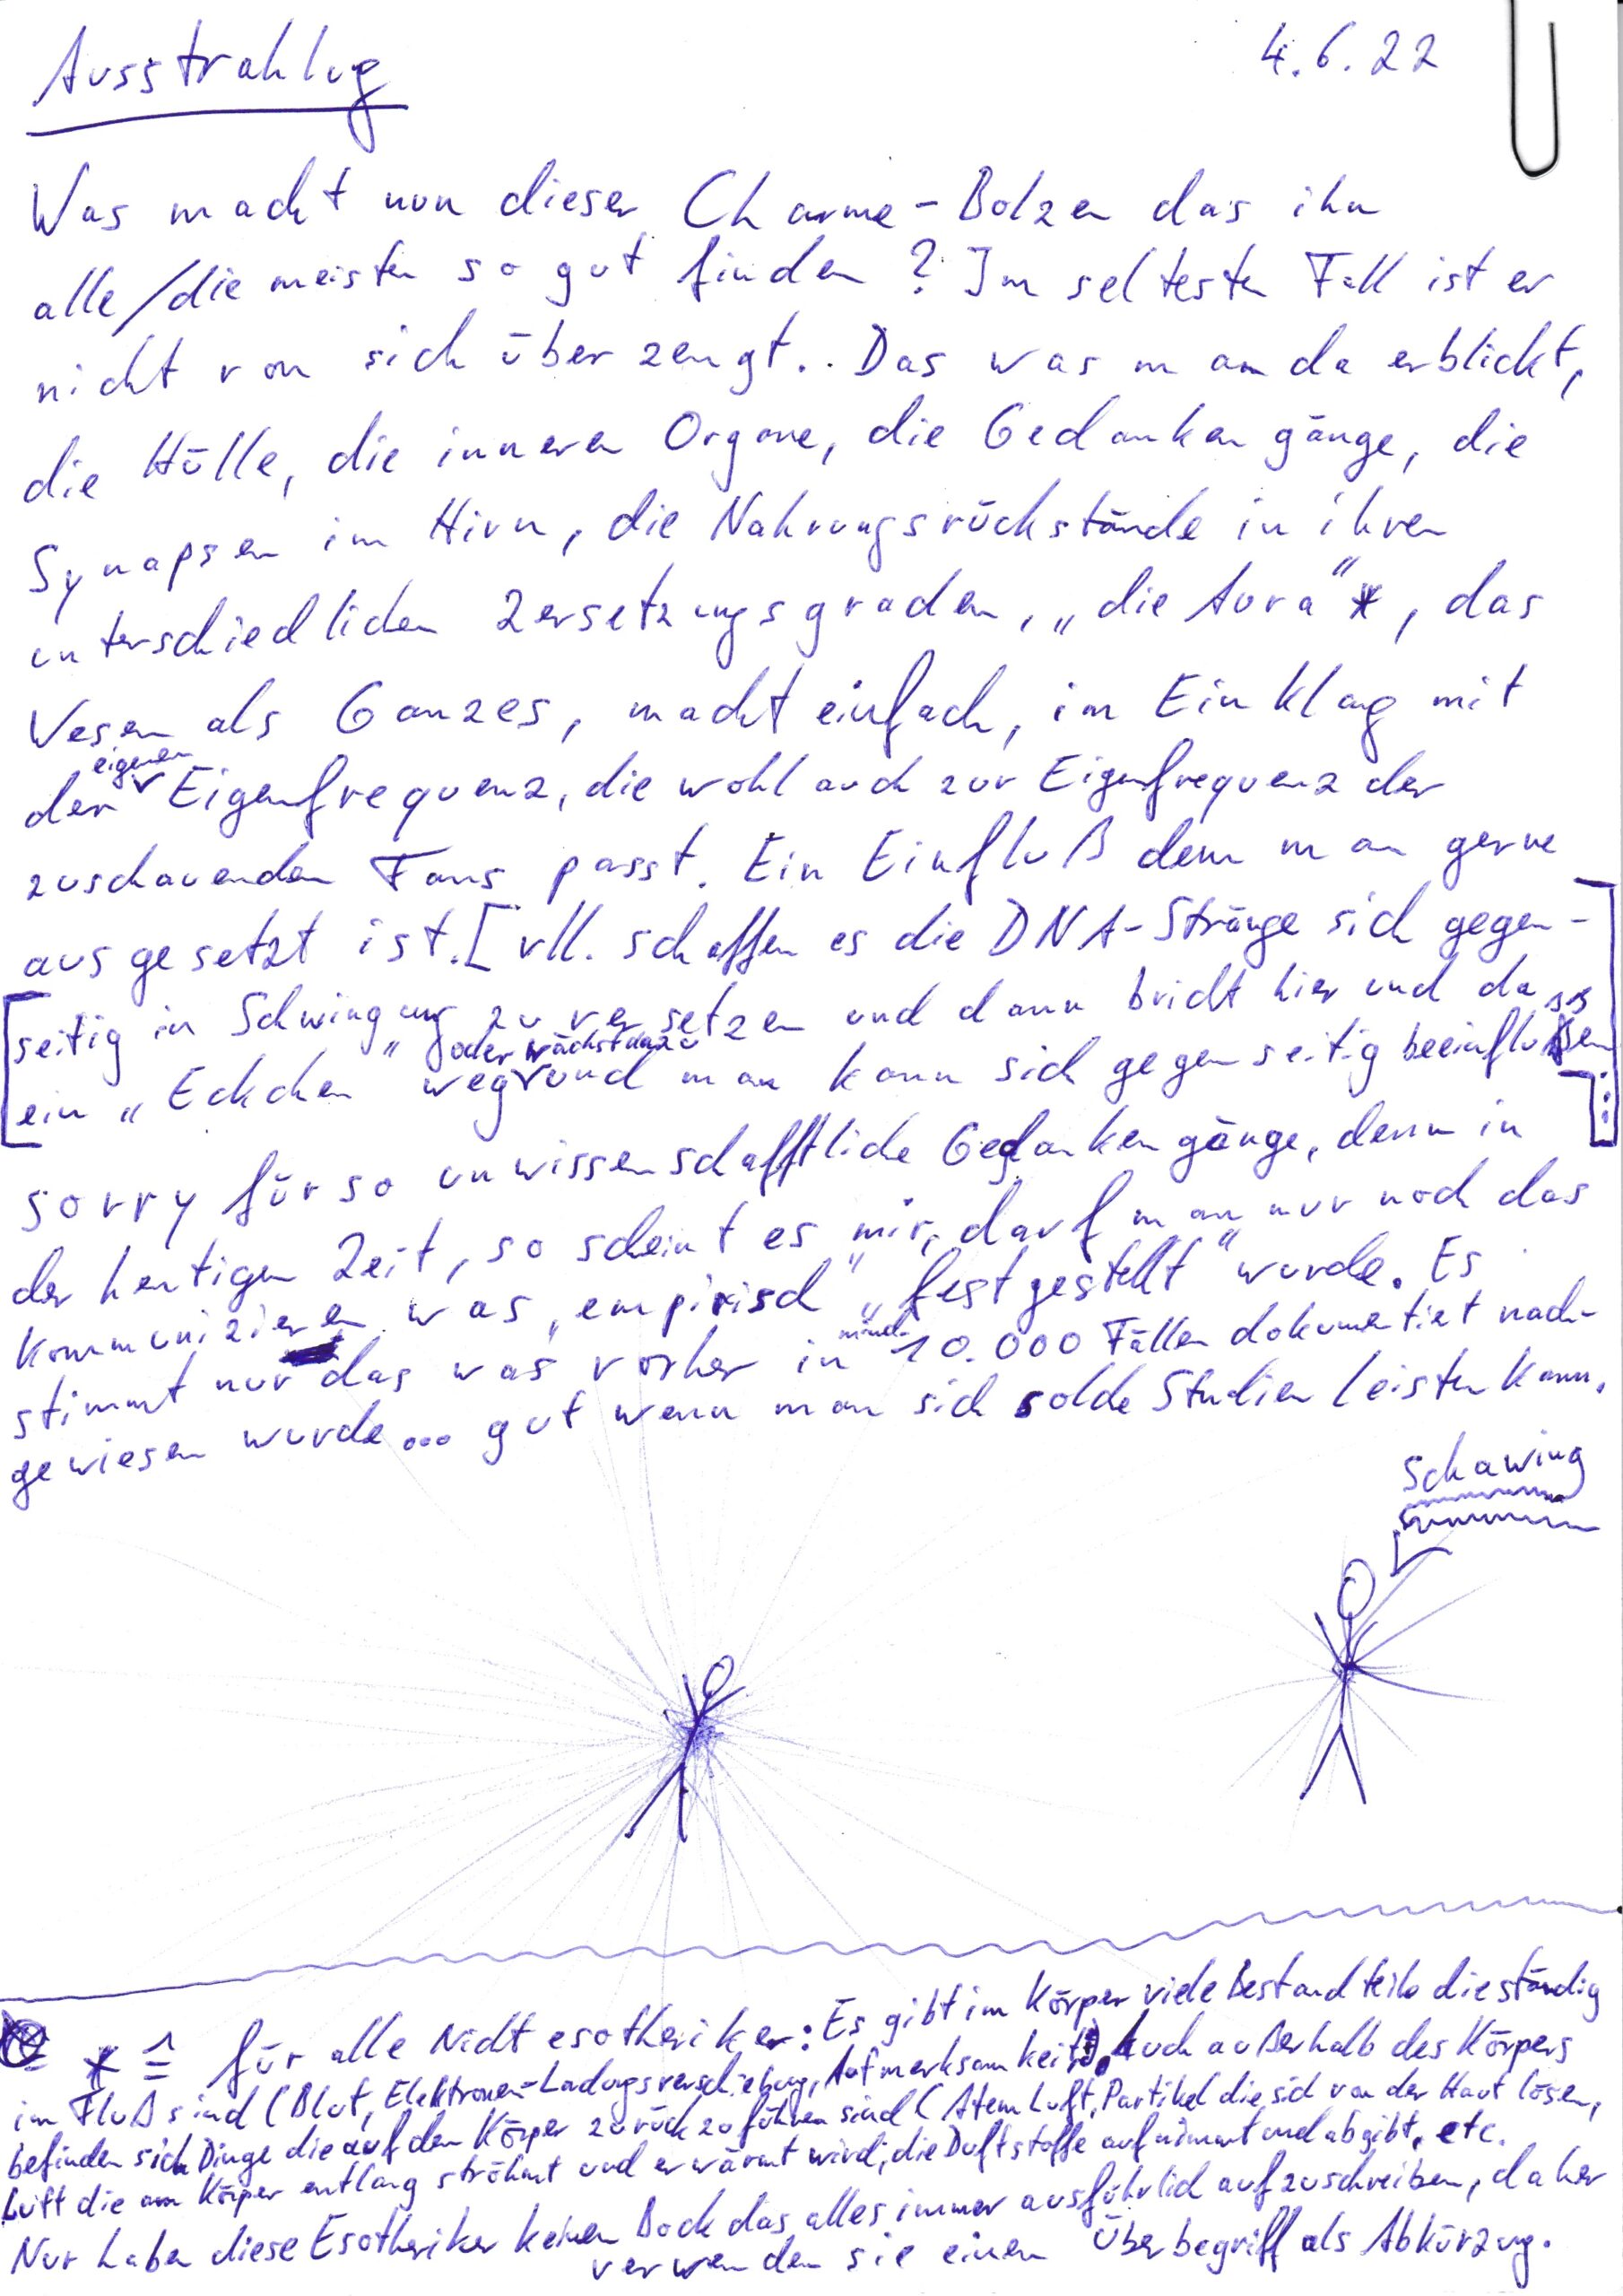 Ausstrahlug
4.6.22
Was macht nun dieser Charme-Bolzen das ihn
alle/die meisten so gut finden? Im seltesten Fall ist er
nicht von sich überzeugt.. Das was man da erblickt,
die Hülle, die inneren Organe, die Gedankengänge, die
Synapsen im Hirn, die Nahrungsrückstände in ihren
unterschiedlichen Zersetzungsgraden, „die Aura"*, das
Wesen als Ganzes, macht einfach, im Einklang mit
eigenen
der Eigenfrequenz, die wohl auch zur Eigenfrequenz der
zuschauenden Fans passt. Ein Einfluß dem man gerne
ausgesetzt ist. [vll. schaffen es die DNA-Stränge sich gegen-
seitig in Schwingung zu versetzen und dann bricht hier und da
oder wächst dazu
ein „Eckchen" weg und man kann sich gegenseitig beeinflussen]
sorry für so unwissenschafftliche Gedankengänge, denn in
der heutigen Zeit, so scheint es mir, darf man nur noch das
kommunizieren was „empirisch" „festgestellt" wurde. Es
mind.
stimmt nur das was vorher in 10.000 Fällen dokumentiert nach-
gewiesen wurde... gut wenn man sich solche Studien leisten kann.
Schawing
* ≙ für alle Nichtesotheriker: Es gibt im Körper viele Bestandteile die ständig
im Fluß sind (Blut, Elektronen-Ladungsverschiebung, Aufmerksamkeit). Auch außerhalb des Körpers
befinden sich Dinge die auf den Körper zurückzuführen sind (Atemluft, Partikel die sich von der Haut lösen,
Luft die am Körper entlang ströhmt und erwärmt wird, die Duftstoffe aufnimmt und abgibt, etc.
Nur haben diese Esotheriker keinen Bock das alles immer ausführlich aufzuschreiben, daher
verwenden sie einen Überbegriff als Abkürzung.